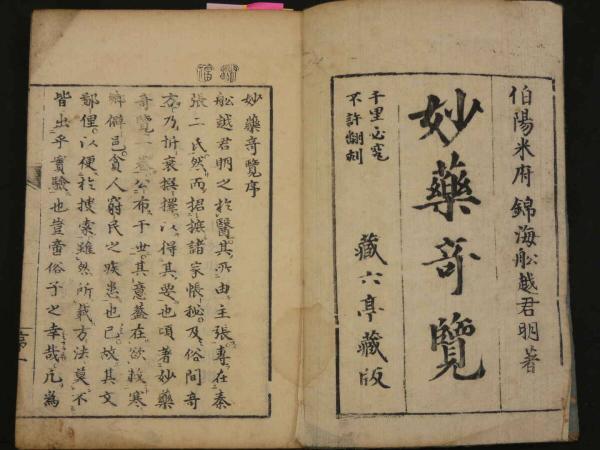 伯陽米府錦海舩越君明著
妙藥奇覽
藏六亭藏版
千里必究
不許翻刻
妙藥奇覽序
舩越君明之於醫其所由主張專在秦
張二氏然而招摭諸家帳祕及俗間奇
方乃折衷撰擇以得其要也頃著妙藥
奇覽一卷公布于世其意蓋在欲救寒
鄉僻邑貧人窮民之疾患也已故其文
鄙俚以便於搜索雖然所載方法莫不
皆出乎實驗也豈啻俗子之幸哉凡為